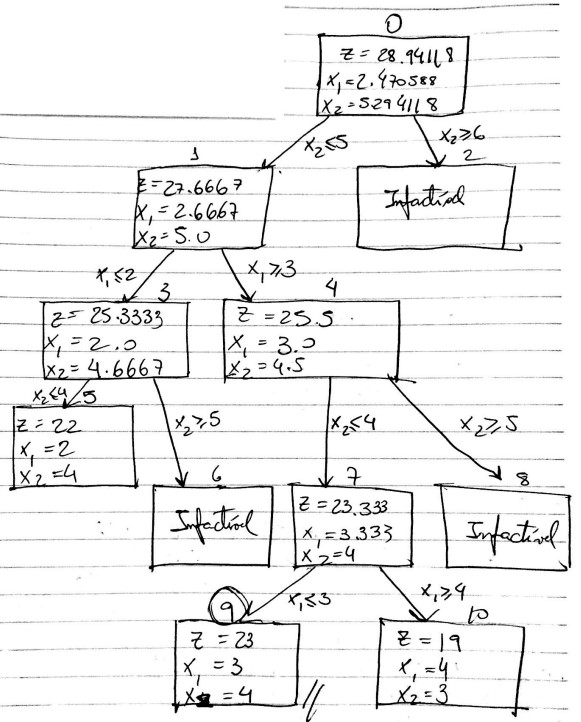 0
Z = 28.94118
X₁ = 2.470588
X₂ = 5.294118
X₂≤5
X₂≥6
1
Z = 27.6667
X₁ = 2.6667
X₂ = 5.0
2
Infactível
X₁≤2
X₁≥3
3
Z = 25.3333
X₁ = 2.0
X₂ = 4.6667
4
Z = 25.5
X₁ = 3.0
X₂ = 4.5
X₂≤4
X₂≥5
X₂≤4
X₂≥5
5
Z = 22
X₁ = 2
X₂ = 4
6
Infactível
7
Z = 23.333
X₁ = 3.333
X₂ = 4
8
Infactível
X₁≤3
X₁≥4
9
Z = 23
X₁ = 3
X₂ = 4
10
Z = 19
X₁ = 4
X₂ = 3